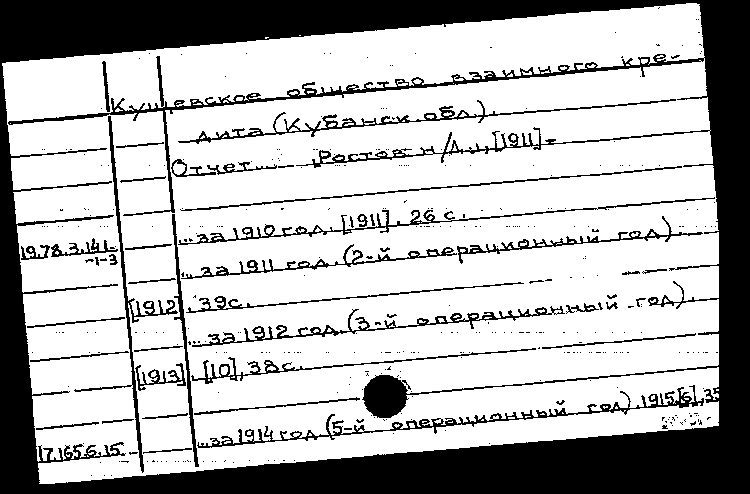 Кущевское общество взаимного кре-
дита (Кубанск. обл.).
Отчет... Ростов н/Д., [1911]-
...за 1910 год. [1911]. 26 с.
19.78.3.141
~1-3
... за 1911 год. (2-й операционный год).
[1912]. 39с.
... за 1912 год. (3-й операционный год).
[1913]. [10], 38с.
...за 1914 год (5-й операционный год). 1915. [6], 35
17.165.6.15.